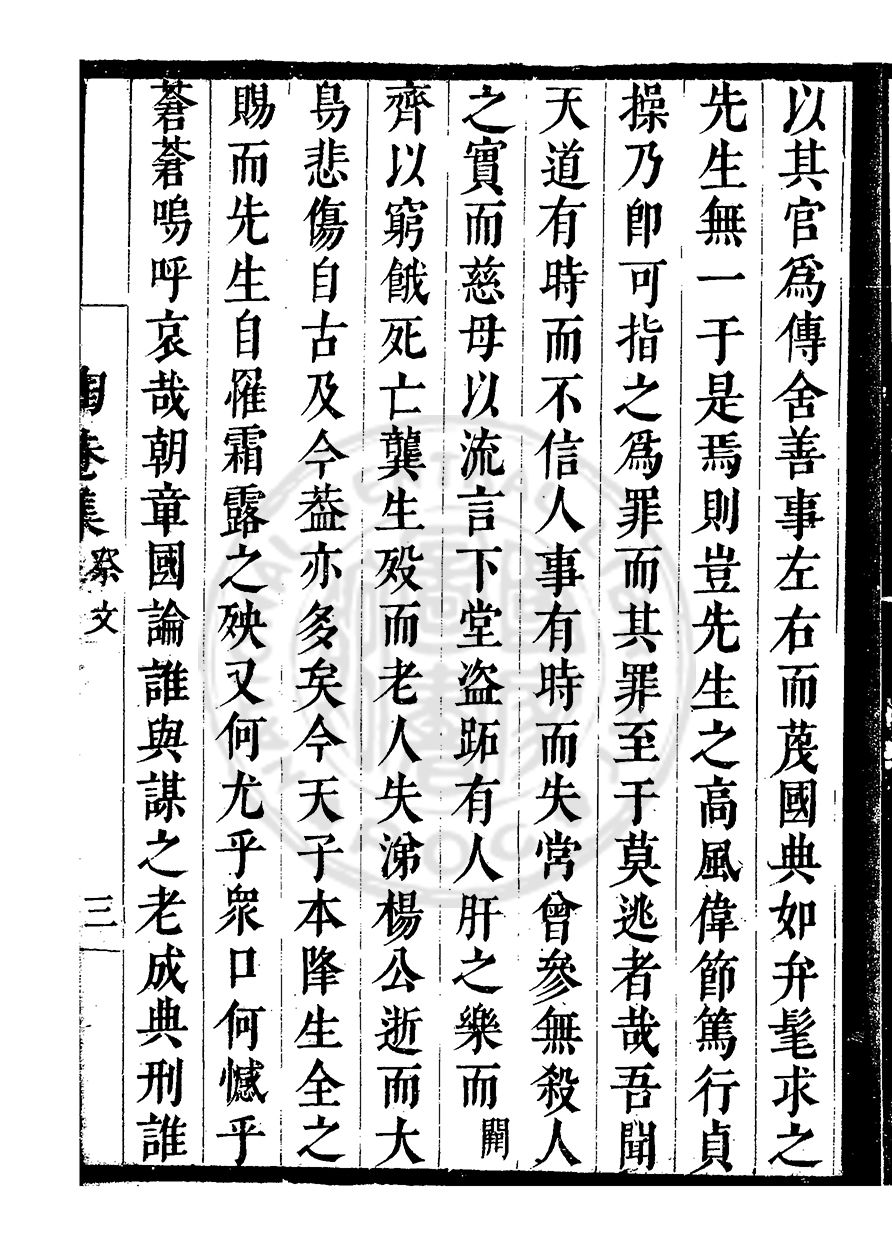 以其官爲傳舍善事左右而蔑國典如弁髦求之
先生無一于是焉則豈先生之高風偉節篤行貞
操乃卽可指之爲罪而其罪至于莫逃者哉吾聞
天道有時而不信人事有時而失常曾參無殺人
之實而慈母以流言下堂盜跖有人肝之樂而闕
齊以窮餓死亡龔生殁而老人失涕楊公逝而大
鳥悲傷自古及今葢亦多矣今天子本降生全之
賜而先生自罹霜露之殃又何尤乎衆口何憾乎
蒼蒼嗚呼哀哉朝章國論誰與謀之老成典刑誰
陶菴集 祭文 三